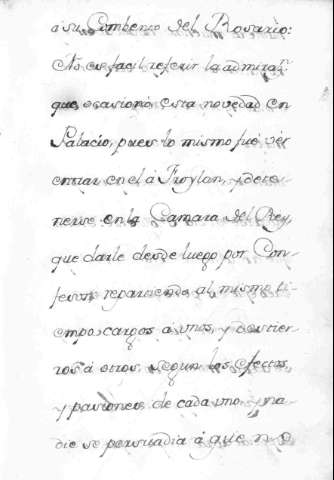 á su Combento del Rosario:
No es facil referir la admiraz.n
que ocasionó esta novedad en
Palacio, pues lo mismo fué vér
entrar en el á Froylan, y dete
nerse en la Camara del Rey,
que darle desde luego por Con
fesor, repartiendo al mismo ti
empo cargos á unos, y destier
ros á otros, segun los efectos,
y pasiones de cada uno y na
die se persuadia á que no